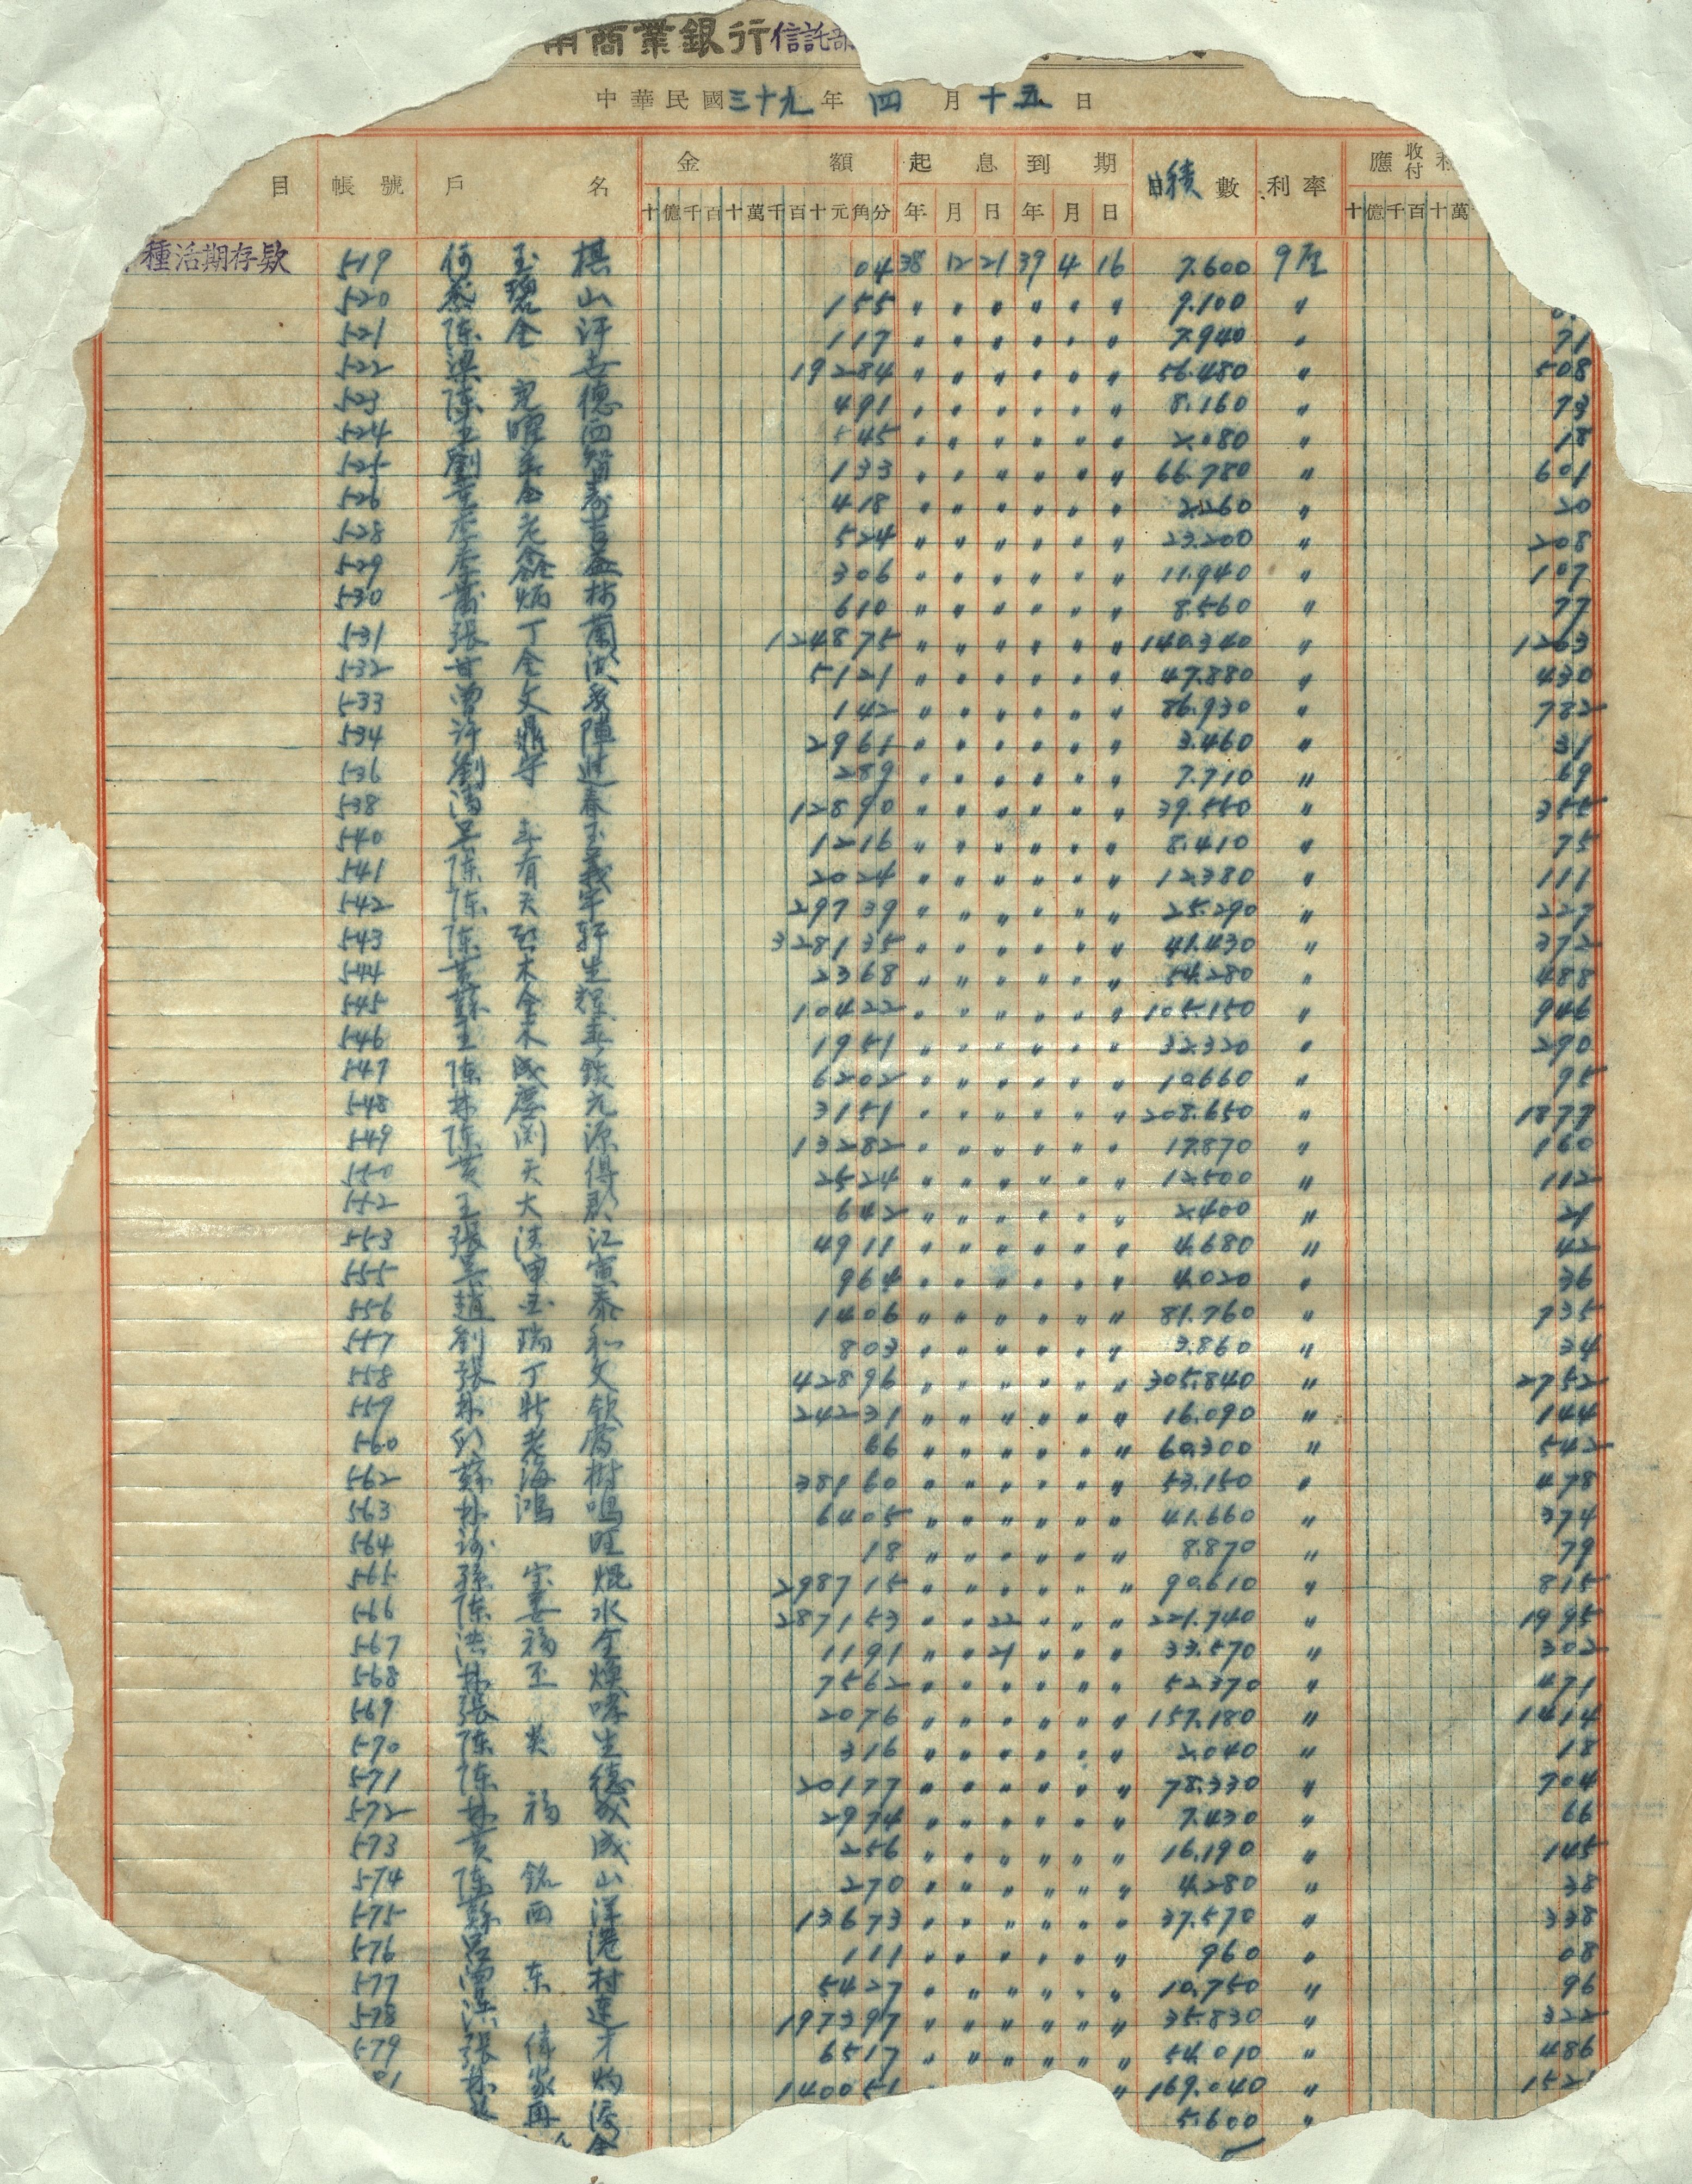 南商業銀行信託部
中華民國三十九年四月十五日
目 帳號 戶名 金額 起息 到期 日積數 利率 應收付利
十億千百十萬千百十元角分 年月日 年月日 十億千百十萬
種活期存款 519 何玉棋 04 38 12 21 39 4 16 7.600 9厘
520 蔡碧山 155 〃 〃 〃 〃 〃 〃 9.100 〃
521 陈金 117 〃 〃 〃 〃 〃 〃 7.940 〃 71
522 梁 19284 〃 〃 〃 〃 〃 〃 56.480 〃 508
523 陈德 491 〃 〃 〃 〃 〃 〃 8.160 〃 73
524 王曜西 545 〃 〃 〃 〃 〃 〃 2.080 〃 18
525 劉 133 〃 〃 〃 〃 〃 〃 66.780 〃 601
526 黄金寿 418 〃 〃 〃 〃 〃 〃 2.260 〃 20
528 李老吉 524 〃 〃 〃 〃 〃 〃 23.200 〃 208
529 李益 306 〃 〃 〃 〃 〃 〃 11.940 〃 107
530 炳林 610 〃 〃 〃 〃 〃 〃 8.560 〃 77
531 張丁蘭 124875 〃 〃 〃 〃 〃 〃 140.340 〃 1263
532 甘金洪 5121 〃 〃 〃 〃 〃 〃 47.880 〃 430
533 曾文 142 〃 〃 〃 〃 〃 〃 86.930 〃 782
534 許鼎 2961 〃 〃 〃 〃 〃 〃 3.460 〃 31
536 劉進 289 〃 〃 〃 〃 〃 〃 7.710 〃 69
538 春 12890 〃 〃 〃 〃 〃 〃 39.560 〃 355
540 吳玉 1216 〃 〃 〃 〃 〃 〃 8.410 〃 75
541 陈有義 2024 〃 〃 〃 〃 〃 〃 12.380 〃 111
542 陈天牢 29739 〃 〃 〃 〃 〃 〃 25.290 〃 227
543 陈軒 328135 〃 〃 〃 〃 〃 〃 41.430 〃 372
544 黄木生 2368 〃 〃 〃 〃 〃 〃 54.280 〃 488
545 蘇金輝 10422 〃 〃 〃 〃 〃 〃 105.150 〃 946
546 王木 1951 〃 〃 〃 〃 〃 〃 32.320 〃 290
547 陈成 6202 〃 〃 〃 〃 〃 〃 10.660 〃 95
548 林慶元 3151 〃 〃 〃 〃 〃 〃 208.650 〃 1877
549 陈渕源 13282 〃 〃 〃 〃 〃 〃 17.870 〃 160
550 黄天得 2524 〃 〃 〃 〃 〃 〃 12.500 〃 112
552 王大 642 〃 〃 〃 〃 〃 〃 2.400 〃 21
553 張江 4911 〃 〃 〃 〃 〃 〃 4.680 〃 42
555 吳寅 964 〃 〃 〃 〃 〃 〃 4.020 〃 36
556 趙玉泰 1406 〃 〃 〃 〃 〃 〃 81.760 〃 735
557 劉瑞和 803 〃 〃 〃 〃 〃 〃 3.860 〃 34
558 張丁文 42896 〃 〃 〃 〃 〃 〃 305.840 〃 2752
559 林欽 24231 〃 〃 〃 〃 〃 〃 16.090 〃 144
560 邱老 66 〃 〃 〃 〃 〃 〃 60.300 〃 542
562 蘇海樹 38160 〃 〃 〃 〃 〃 〃 53.150 〃 478
563 林鴻鳴 6405 〃 〃 〃 〃 〃 〃 41.660 〃 374
564 旺 18 〃 〃 〃 〃 〃 〃 8.870 〃 79
565 孫宝焜 298715 〃 〃 〃 〃 〃 〃 90.610 〃 815
566 陈水 287153 〃 〃 22 〃 〃 〃 221.740 〃 1995
567 洪福全 1191 〃 〃 21 〃 〃 〃 33.570 〃 302
568 林玉煥 7562 〃 〃 〃 〃 〃 〃 52.370 〃 471
569 張 2076 〃 〃 〃 〃 〃 〃 157.180 〃 1414
570 陈英生 316 〃 〃 〃 〃 〃 〃 2.040 〃 18
571 陈德 20177 〃 〃 〃 〃 〃 〃 78.330 〃 704
572 林福成 2974 〃 〃 〃 〃 〃 〃 7.430 〃 66
573 黄成 256 〃 〃 〃 〃 〃 〃 16.190 〃 145
574 陈銘山 270 〃 〃 〃 〃 〃 〃 4.280 〃 38
575 蘇西洋 13673 〃 〃 〃 〃 〃 〃 37.570 〃 338
576 呂港 111 〃 〃 〃 〃 〃 〃 960 〃 08
577 曹东村 5427 〃 〃 〃 〃 〃 〃 10.750 〃 96
578 洪連 197397 〃 〃 〃 〃 〃 〃 35.830 〃 322
579 張才 6517 〃 〃 〃 〃 〃 〃 54.010 〃 486
81 林家灼 140051 〃 169.040 〃 152
再 5.600 〃
金